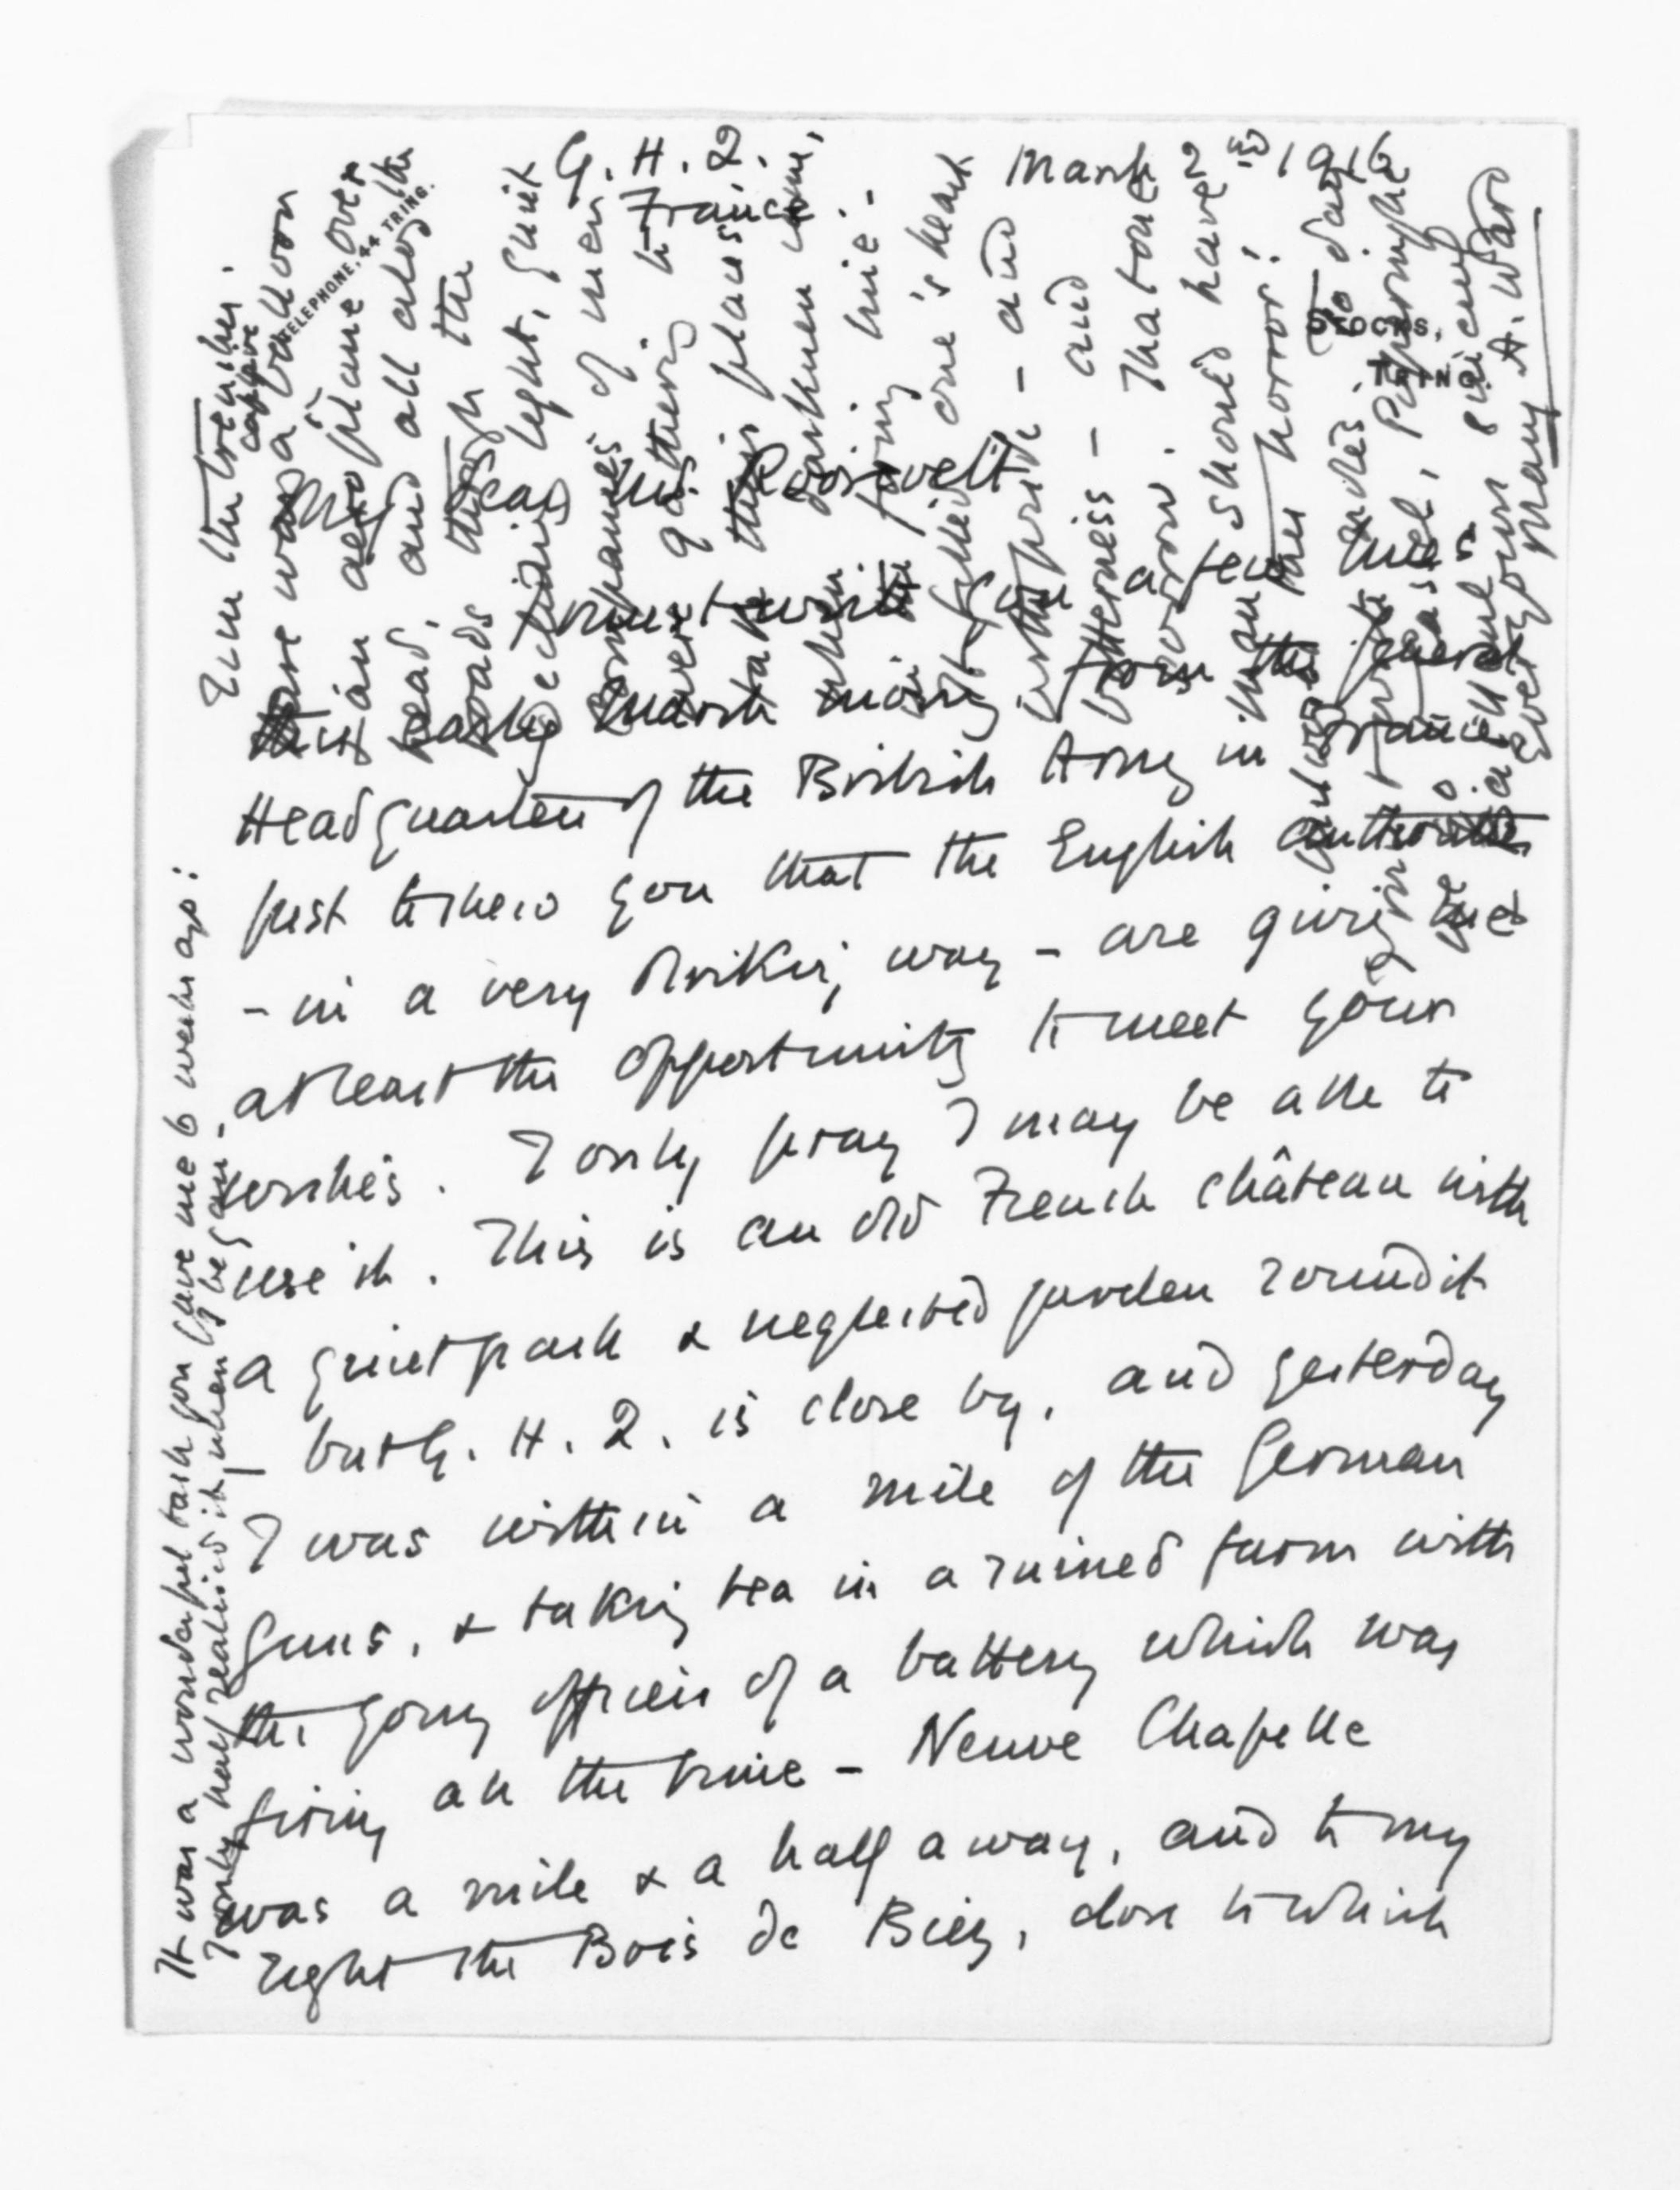 G. H. Q.
France.
March 2nd 1916
TELEPHONE, 44 TRING.
STOCKS,
TRING.
My dear Mr. Roosevelt
I must write you a few lines
this early March morning from the General
Headquarters of the British Army in France
just to shew you that the English authorities
- in a very striking way - are giving me
at least the opportunity to meet your
wishes. I only pray I may be able to
use it. This is an old French château with
a quiet park & neglected garden round it
but G. H. Q. is close by, and yesterday
I was within a mile of the German
guns, & taking tea in a ruined farm with
the young officers of a battery which was
firing all the time - Neuve Chapelle
was a mile & a half away, and to my
right the Bois de Biez, close to which
It was a wonderful task you gave me 6 weeks ago:
I only half realised it when I began.
run the trenches.
There was a captive balloon
& an aeroplane over
head, and all along the
roads through the
declining light, quiet
companies of men
were gathering to
take their places,
when darkness came,
in the firing line.
It filled one's heart
with pride - and
bitterness - and
sorrow. That one
man should have
horror!
To day
Poperinghe
ever yours sincerely
Mary A. Ward